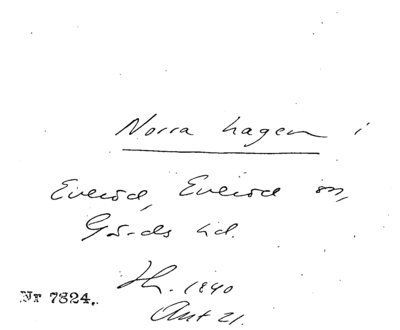 Norra hagen i
Everöd, Everöd sn,
Gärds hd.
1840
Akt 21.
Nr 7324.